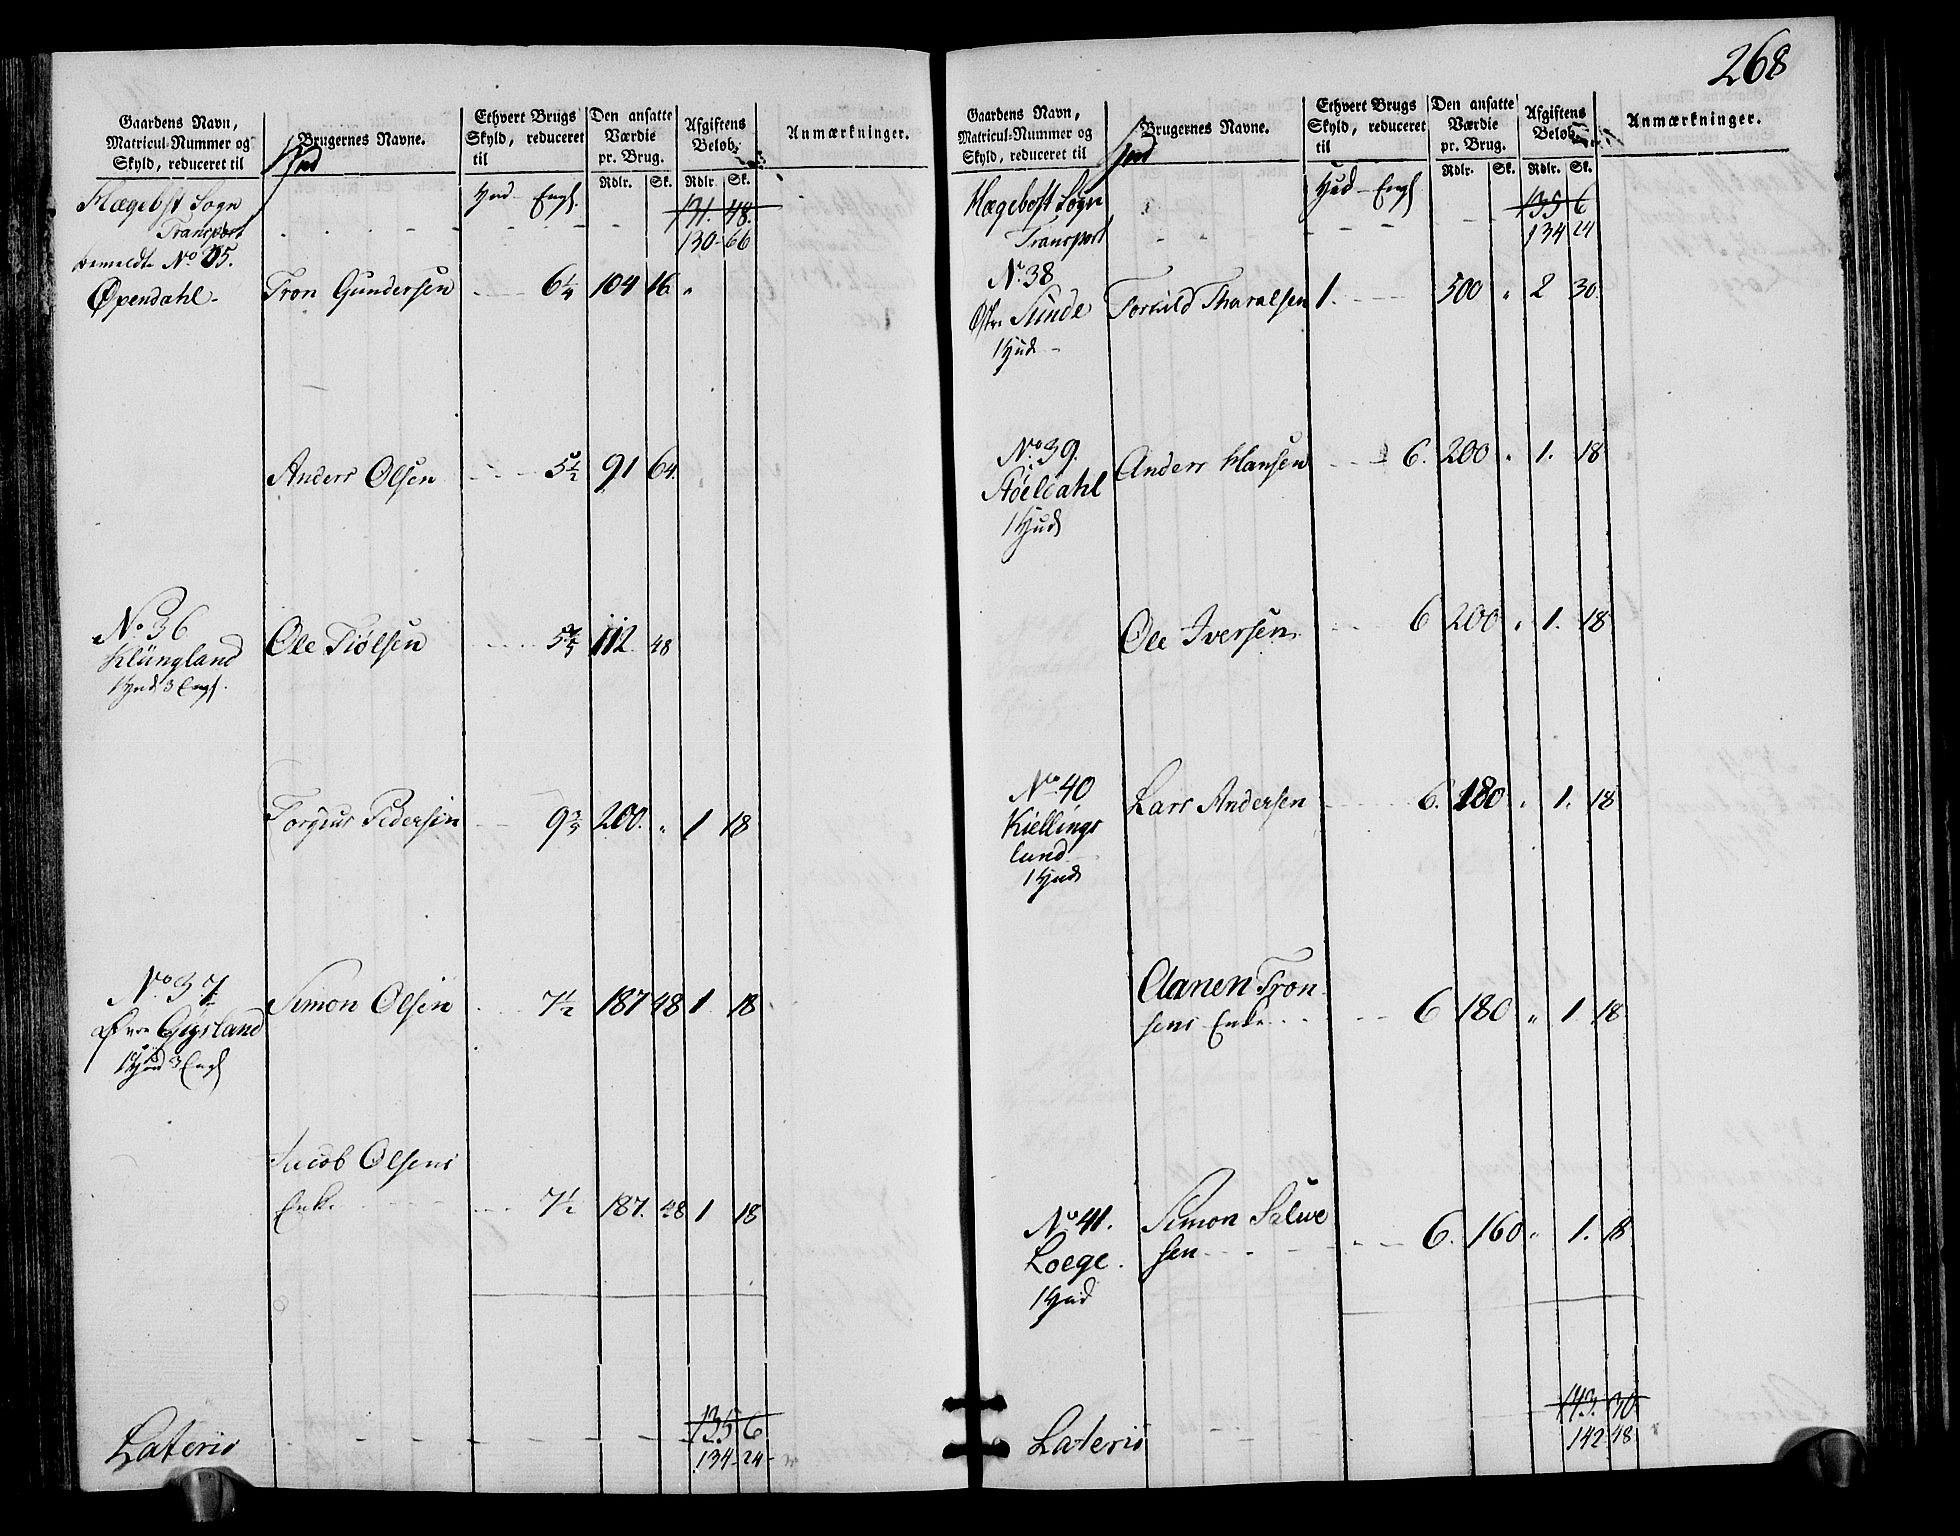 268
Gaardens Navn,
Matricul-Nummer og
Skyld, reduceret til
Brugernes Navne.
Ethvert Brugs
Skyld, reduceret
til
Den ansatte
Værdie
pr. Brug.
Afgiftens
Beløb.
Anmærkninger.
Rdlr. Sk. Rdlr. Sk.
Hud Engl.
Hægebost Sogn 131. 48.
Transport 130-66
No 35.
Øpendahl Tron Gundersen 6¼ 104 16 "
Anders Olsen 5½ 91 64.
No 36
Klüngland Ole Tiølsen 5¾ 112. 48
1 Hud 3 Engl.
Torgiur Pedersen 9¾ 200. " 1 18
No 37
Gÿsland Simon Olsen 7½ 187 48 1 18
1 Hud 3 Engl
Jacob Olsens
Enke 7½ 187. 48 1 18
135 6
Lateris 134-24
Gaardens Navn,
Matricul-Nummer og
Skyld, reduceret til
Brugernes Navne.
Ethvert Brugs
Skyld, reduceret
til
Den ansatte
Værdie
pr. Brug.
Afgiftens
Beløb.
Anmærkninger.
Rdlr. Sk. Rdlr. Sk.
Hud Engl
Hægebost Sogn 135 6
Transport 134 24
No 38
Sünde Torkild Tharalsen 1. 500 " 2 30.
1 Hud
No 39.
Støeldahl Anders Hansen 6. 200 " 1. 18
1 Hud
Ole Iversen 6 200 " 1. 18
No 40 Lars Andersen 6. 180 " 1. 18
Kiellings
lund
1 Hud
Aanen Tron
sens Enke 6 180 " 1. 18
No 41. Simon Salve
Loege. sen 6. 160 " 1. 18
1 Hud
143. 30
Lateris 142 48